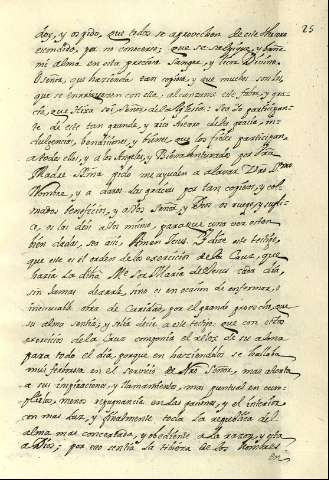 25
doy, y os pido, que todos se aprovechen de este thesoro
escondido, por no conocerse; que se salpique, y bañe
mi alma en esta preciosa Sangre, y licor Divino.
O Señor, que hacienda tan copiosa, y que muchos son los,
que se enriquecen con ella, alcanzeme este favor, y gra-
cia, que Hija soy Señor de la Iglesia: sea Yo participan-
te de este tan grande, y rico thesoro de la gracia, in-
dulgencias, bendiciones, y bienes, que los fieles participan,
a todos ellos, y a los Angeles, y Bienaventurados, por
Madre Mia pido me ayuden a alabar Vro. Santo
Nombre, y a daros las gracias por tan copiosos, y col-
mados beneficios, y a Vos Señor, y Dios os ruego, y supli-
co, no los deis a los mios, para que una vez esten
bien dadas, sea assi, Amen Jesus. Y dice este testigo,
que este es el orden de los exercicios de la Cruz, que
hacia la dicha Me. Sor Maria de Jesus cada dia,
sin jamas dexarle, sino es en ocasion de enfermos, o
inexcusable obra de Caridad, por el grande provecho, que
su alma sentia; y solia decir a este testigo que con estos
exercicios de la Cruz componia el relox de su alma
para todo el dia, porque en haciendolos se hallaba
mas fervorosa en el servicio de Nro. Señor, mas atenta
a sus inspiraciones, y llamamientos, mas puntual en cum-
plirlos, menos repugnancia en las passiones, y el interior
con mas luz, y finalmente toda la republica del
alma mas concertada, y obediente a la razon, y esta
a Dios; por no sentia la tibieza de los